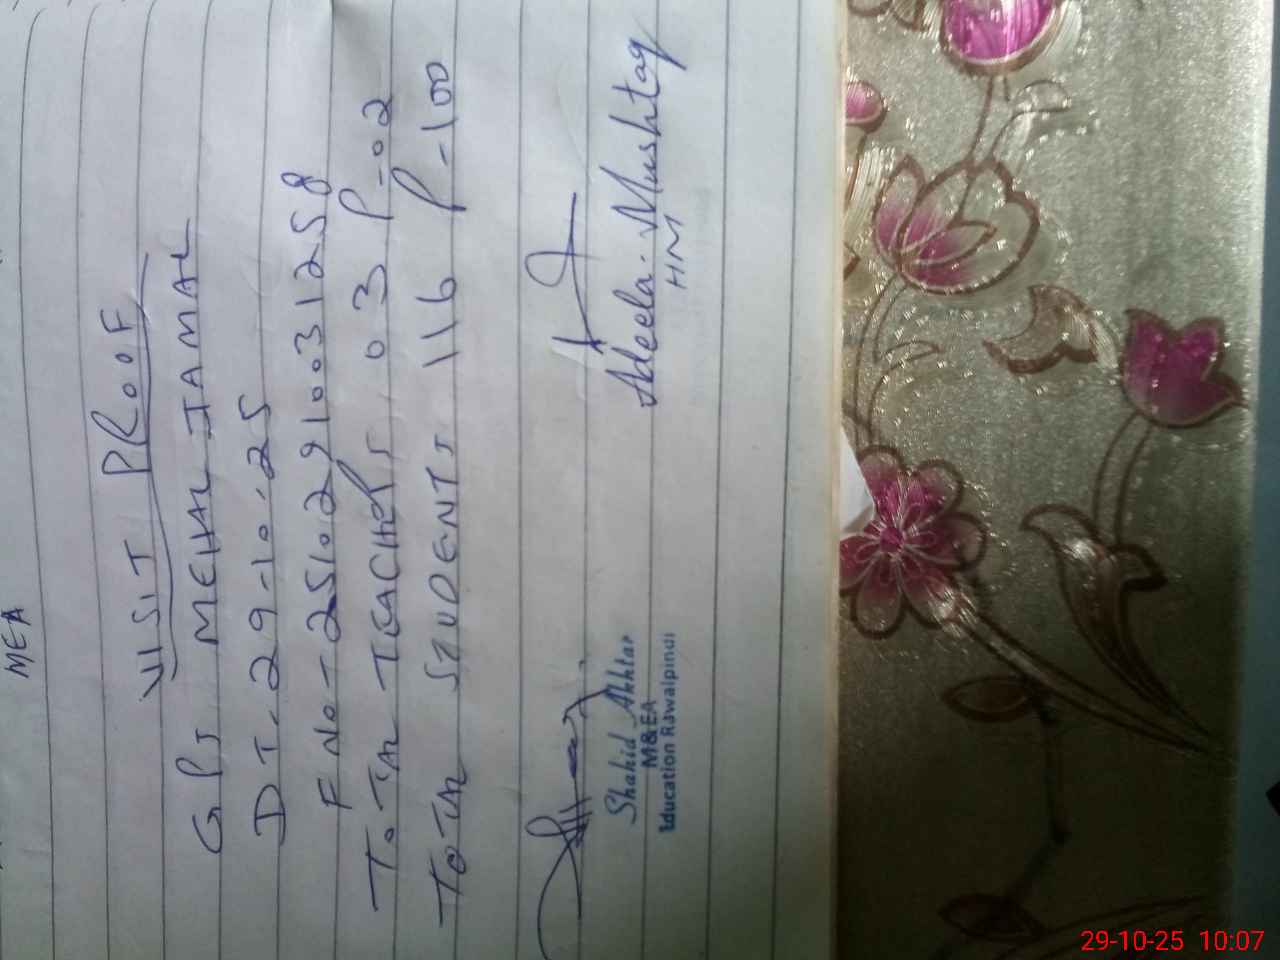 MEA
VISIT PROOF
GPS MEHAL JAMAL
DT. 29-10-25
F No- 25102910031258
TOTAL TEACHERS 03 P-02
TOTAL STUDENTS 116 P-100
Shahid Akhtar
M&EA
Education Rawalpindi
Adeela Mushtaq
HM
29-10-25 10:07